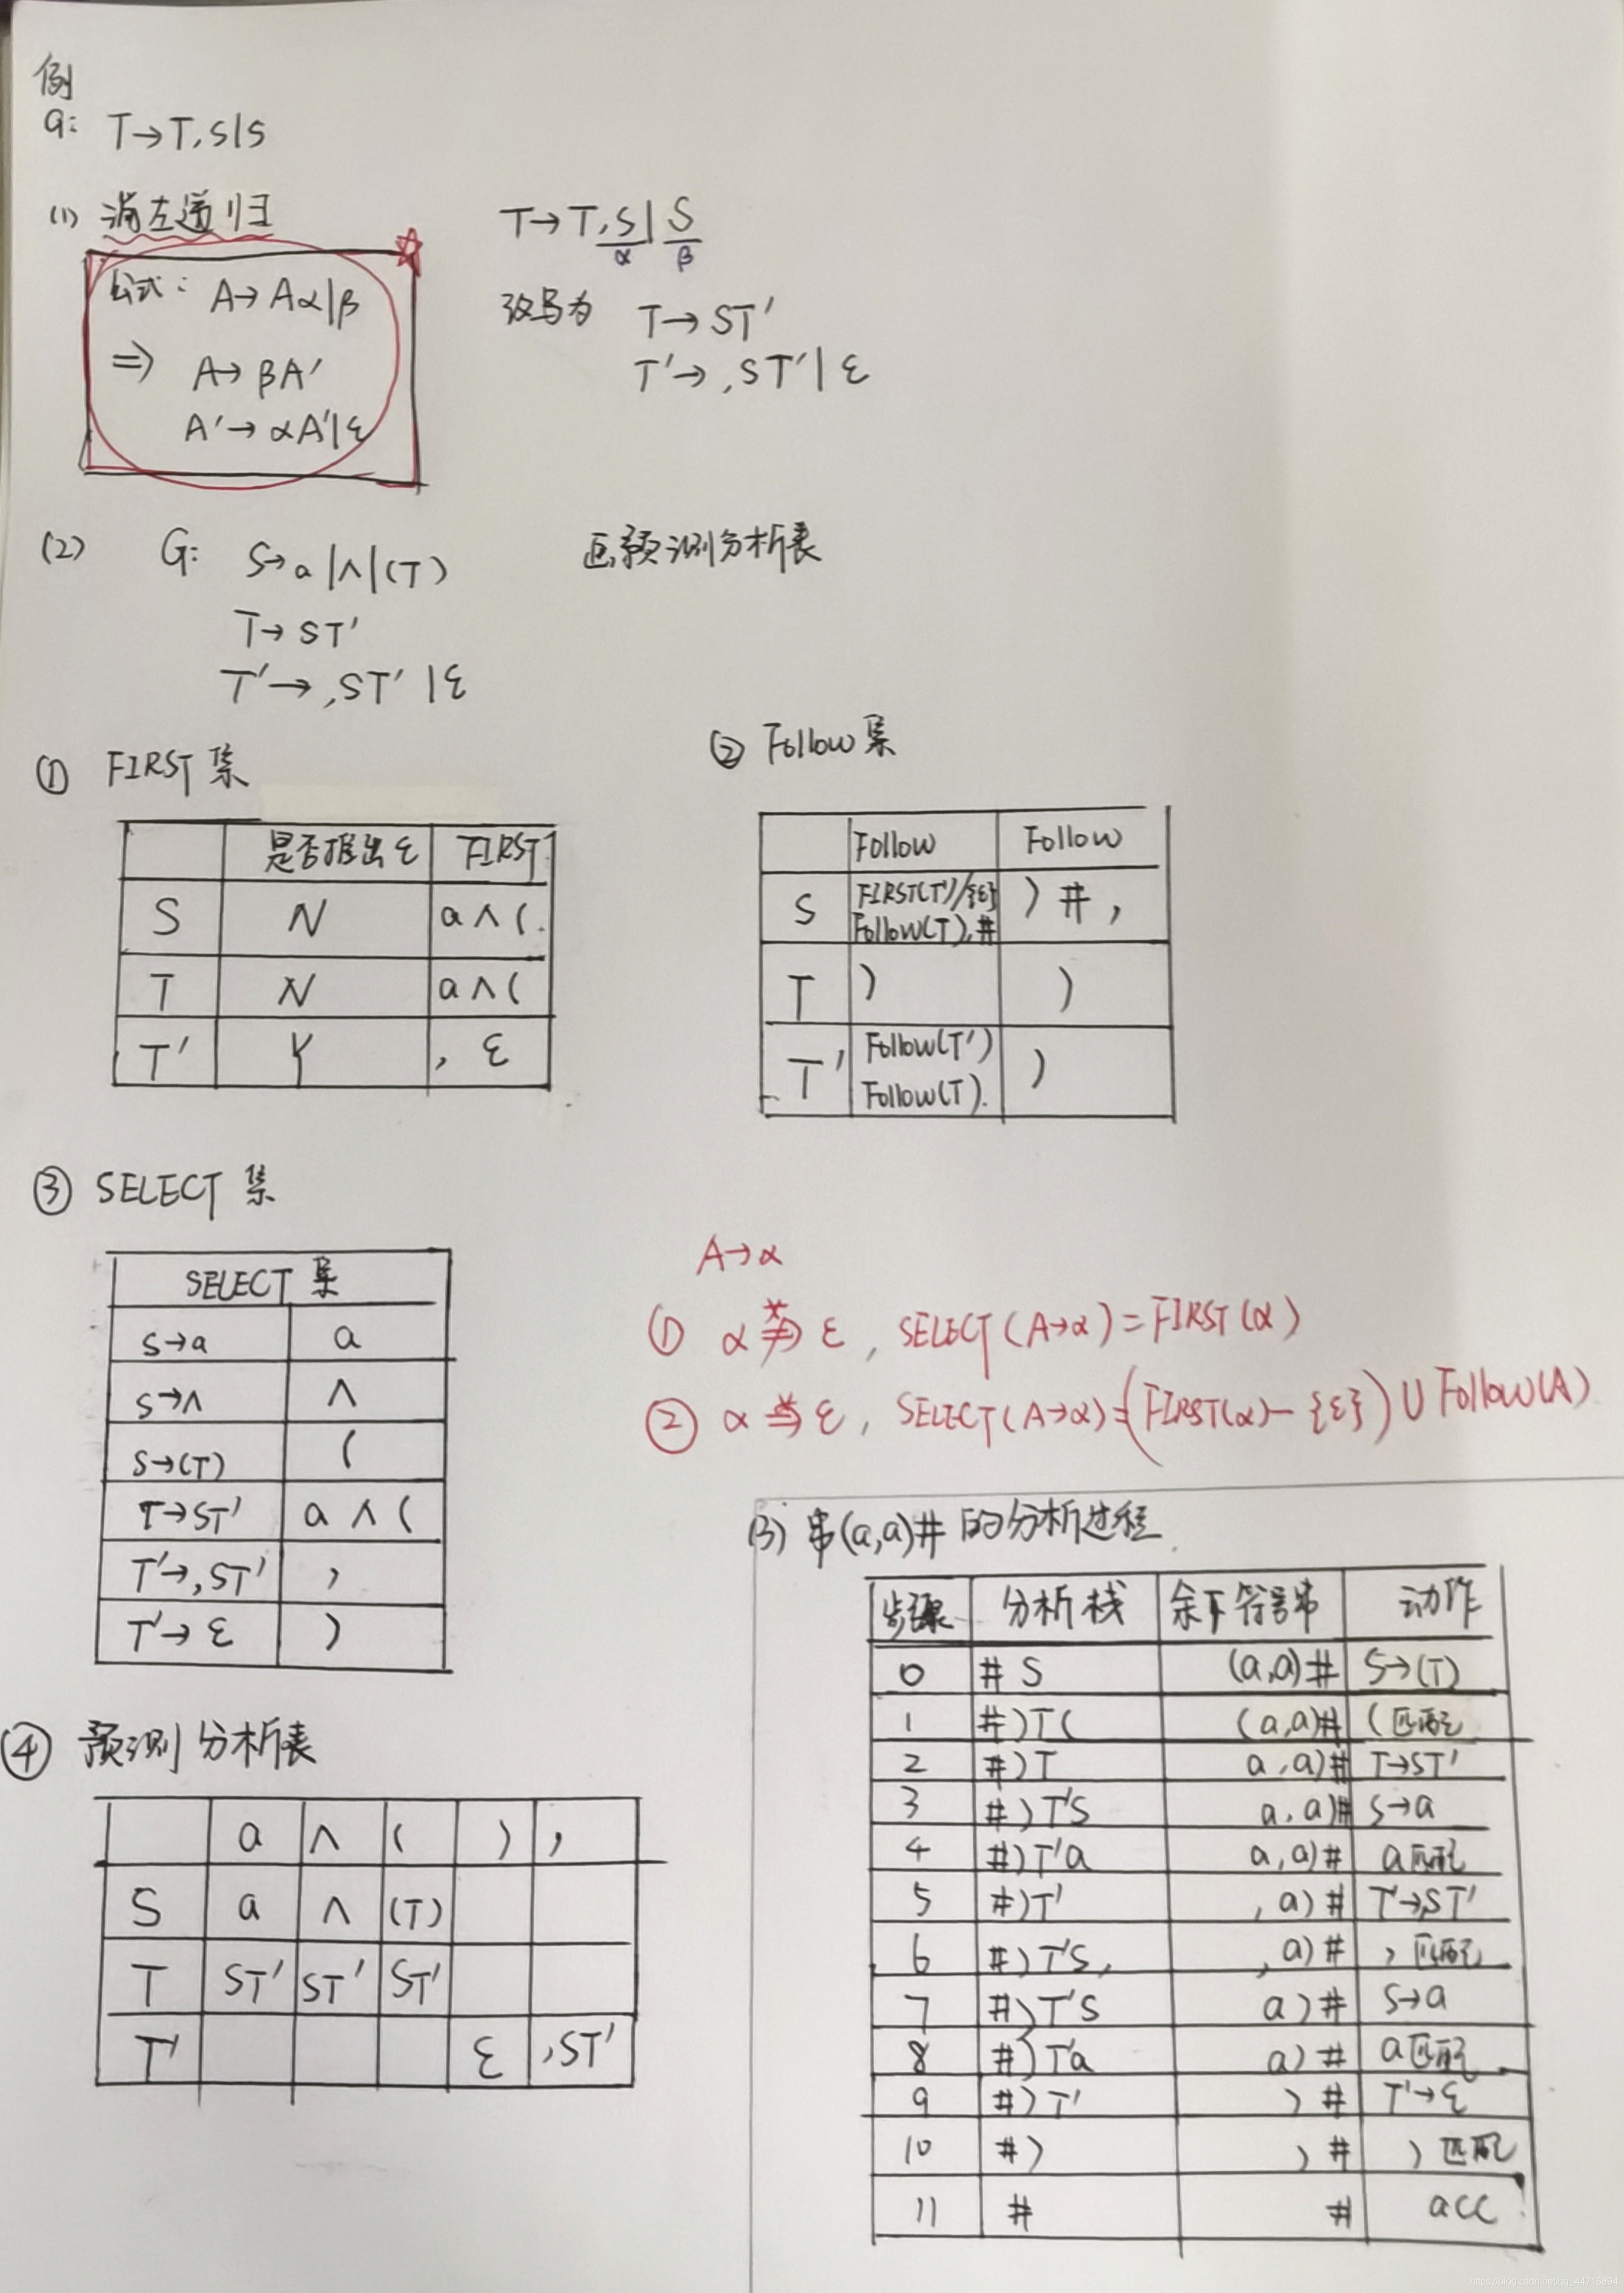 例
G: T→T,S|S
(1) 消左递归
公式: A→Aα|β
⇒ A→βA'
A'→αA'|ε
T→T,S|S
α β
改写为 T→ST'
T'→,ST'|ε
(2) G: S→a|∧|(T)
T→ST'
T'→,ST'|ε
画预测分析表
① FIRST集
是否推出ε FIRST
S N a∧(
T N a∧(
T' Y , ε
② Follow集
Follow Follow
S FIRST(T')/{ε} Follow(T),# )#,
T ) )
T' Follow(T') Follow(T). )
③ SELECT集
SELECT集
S→a a
S→∧ ∧
S→(T) (
T→ST' a∧(
T'→,ST' ,
T'→ε )
A→α
① α *⇏ ε, SELECT(A→α)=FIRST(α)
② α *⇒ ε, SELECT(A→α)=(FIRST(α)-{ε})∪Follow(A)
④ 预测分析表
a ∧ ( ) ,
S a ∧ (T)
T ST' ST' ST'
T' ε ,ST'
(3) 串(a,a)#的分析过程.
步骤 分析栈 余下符号串 动作
0 #S (a,a)# S→(T)
1 #)T( (a,a)# (匹配
2 #)T a,a)# T→ST'
3 #)T'S a,a)# S→a
4 #)T'a a,a)# a匹配
5 #)T' ,a)# T'→,ST'
6 #)T'S, ,a)# ,匹配
7 #)T'S a)# S→a
8 #)T'a a)# a匹配
9 #)T' )# T'→ε
10 #) )# )匹配
11 # # acc
https://blog.csdn.net/qq_44716894